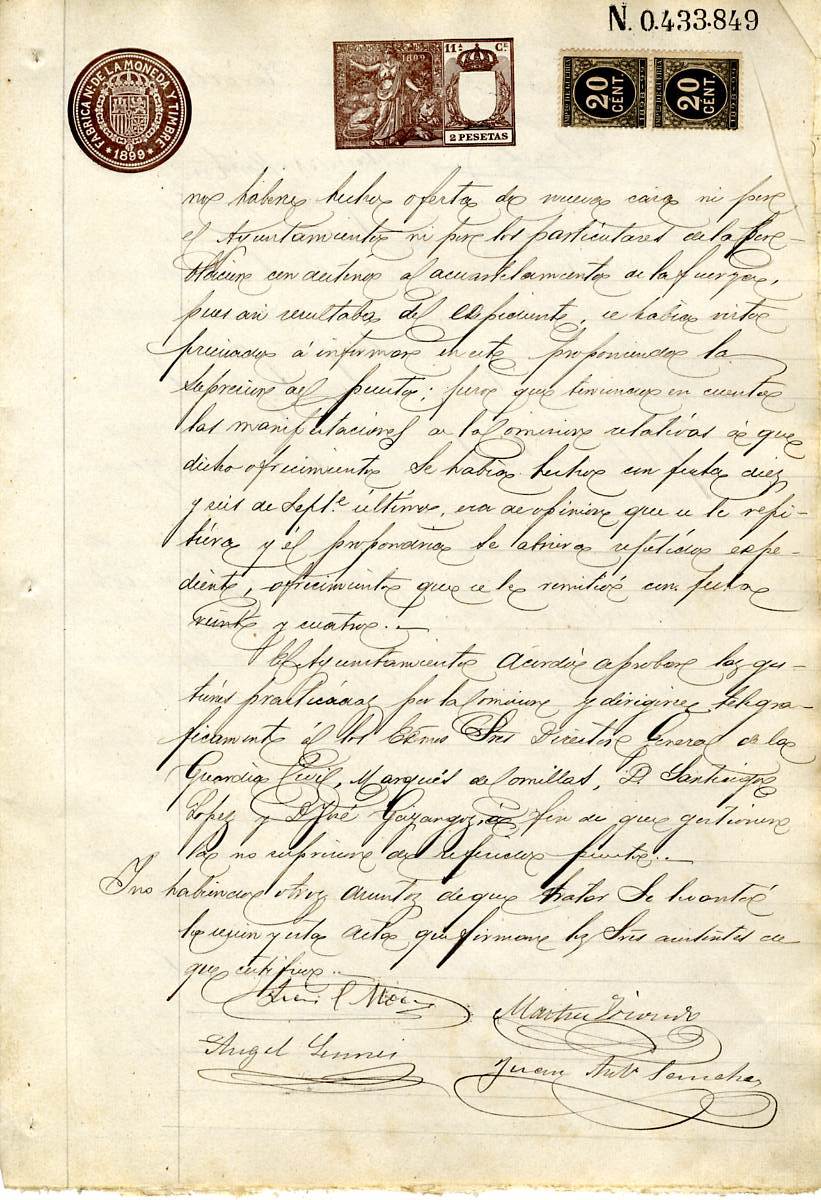 N. 0.433.849
FABRICA NAL DE LA MONEDA Y TIMBRE
* 1899 *
1899
11ª Cᵉ
2 PESETAS
IMPTO DE GUERRA
20 CENT.
1898-99
IMPTO DE GUERRA
20 CENT.
1898-99
no haberse hecho oferta de nueva casa ni por
el Ayuntamiento ni por los particulares de la po-
blacion con destino al acuartelamiento de la fuerza,
pues asi resultaba del expediente, se habia visto
precisado á informar en este proponiendo la
supresion del puesto; pero que teniendo en cuenta
las manifestaciones de la Comision relativas á que
dicho ofrecimiento se habia hecho con fecha diez
y seis de Septᵉ último, era de opinion que se le repi-
tiera y él propondria se abriera repetido expe-
diente, ofrecimiento que se le remitió con fecha
veinte y cuatro.
El Ayuntamiento acordó aprobar las ges-
tiones practicadas por la Comision y dirigirse telegra-
ficamente á los Exmos Sres Director General de la
Guardia Civil, Marqués de Comillas, D. Santiago
Lopez y D. José Gayangoz, á fin de que gestionen
la no supresion de referido puesto.
Y no habiendo otros asuntos de que tratar se levantó
la sesion y esta acta que firman los Sres asistentes de
que certifico.
Martin
Angel
Juan Antº Sanchez